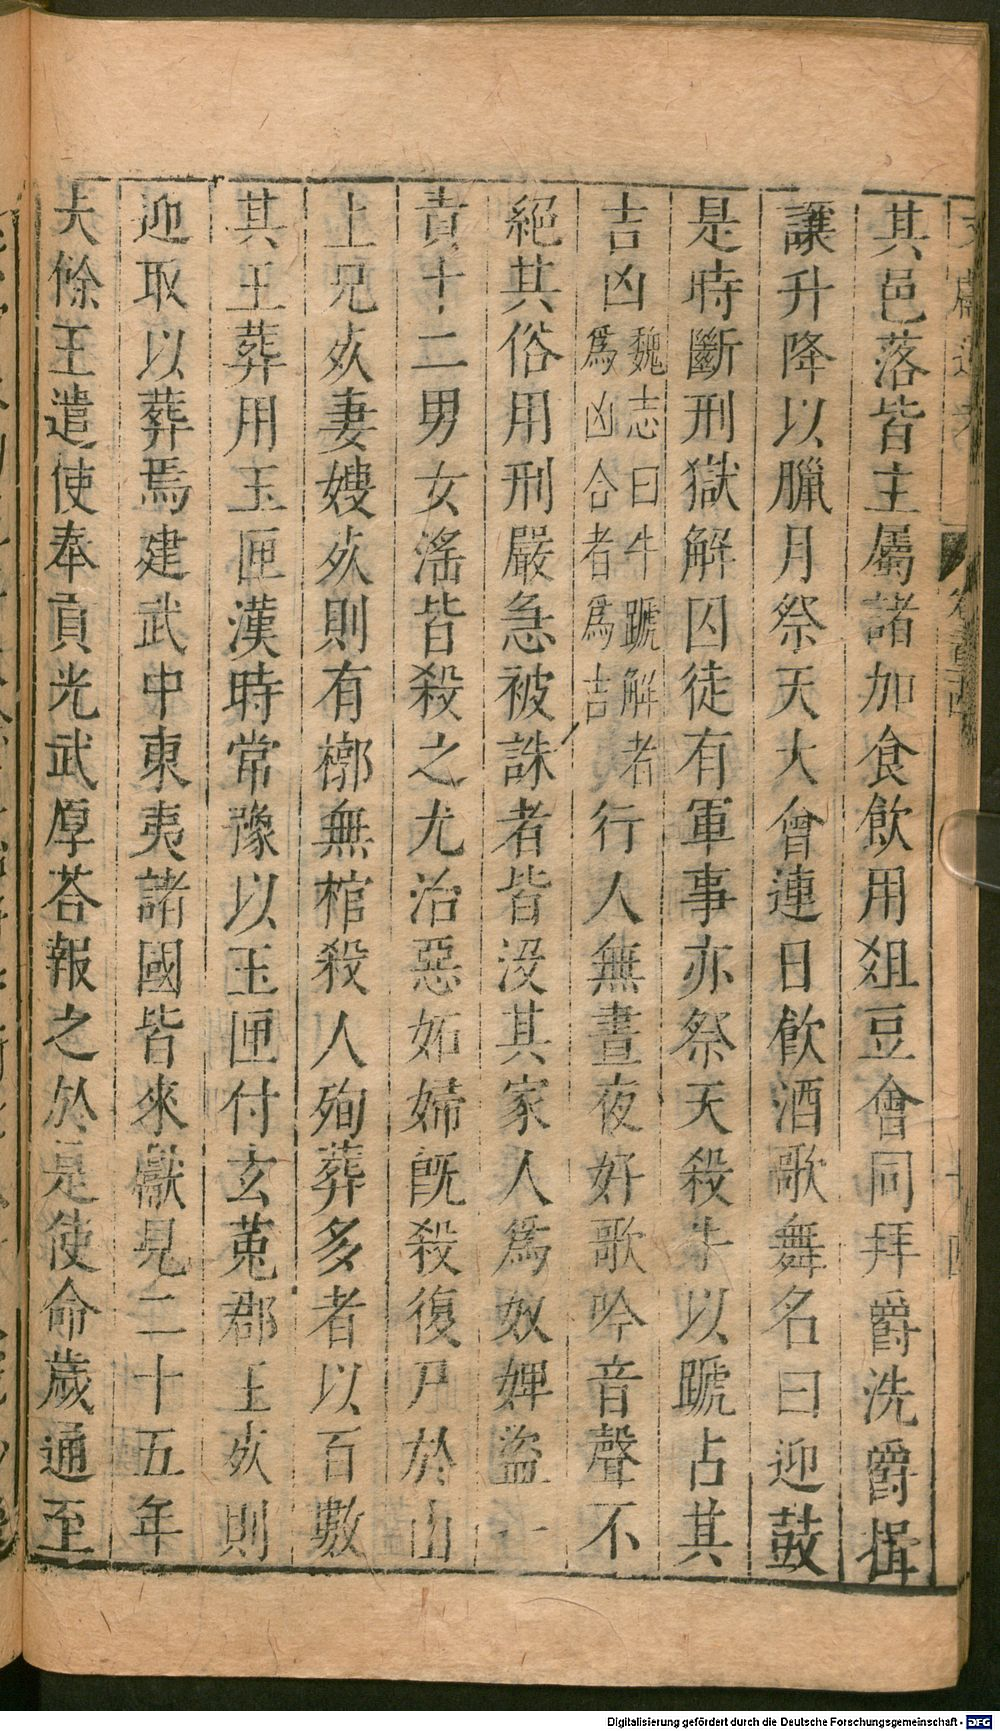 其邑落皆主屬諸加食飲用俎豆會同拜爵洗爵揖
讓升降以臘月祭天大會連日飲酒歌舞名曰迎鼓
是時斷刑獄解囚徒有軍事亦祭天殺牛以蹏占其
吉凶魏志曰牛蹏解者爲凶合者爲吉行人無晝夜好歌吟音聲不
絕其俗用刑嚴急被誅者皆没其家人爲奴婢盜一
責十二男女滛皆殺之尤治惡妬婦旣殺復尸於山
上兄死妻嫂死則有槨無棺殺人殉葬多者以百數
其王葬用玉匣漢時常豫以玉匣付玄菟郡王死則
迎取以葬焉建武中東夷諸國皆來獻見二十五年
夫餘王遣使奉貢光武厚荅報之於是使命歲通至
Digitalisierung gefördert durch die Deutsche Forschungsgemeinschaft - DFG